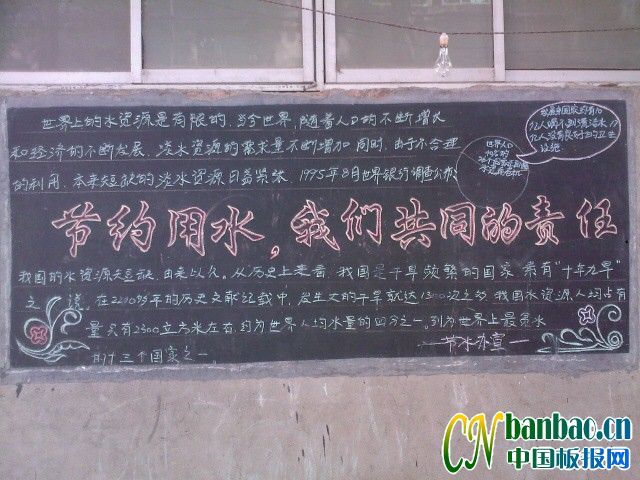 世界上的水资源是有限的，当今世界，随着人口的不断增长
和经济的不断发展，淡水资源的需求量不断增加，同时，由于不合理
的利用，本来短缺的淡水资源日益紧张，1995年8月世界银行调查公布
世界人口
40%的
水荒危机
发展中国家约有10
亿人喝不到清洁水，17
亿人没有良好的卫生
设施
节约用水，我们共同的责任
我国的水资源天短缺，由来以久。从历史上来看，我国是干旱频繁的国家，素有"十年九旱"
之说，在2200多年的历史文献记载中，发生大的干旱就达1300次之多，我国水资源人均占有
量只有2300立方米左右，约为世界人均水量的四分之一。列为世界上最贫水
的十三个国家之一。
节水办宣
CNbanbao.cn
中国板报网